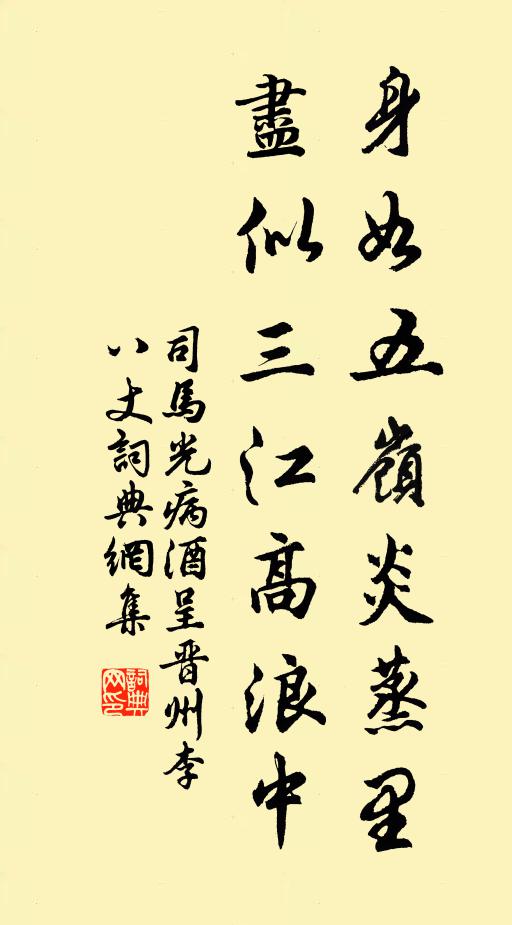 身如五嶺炎蒸里
盡似三江高浪中
司馬光病酒呈晋州李
八丈詞典網集
詞典
网印